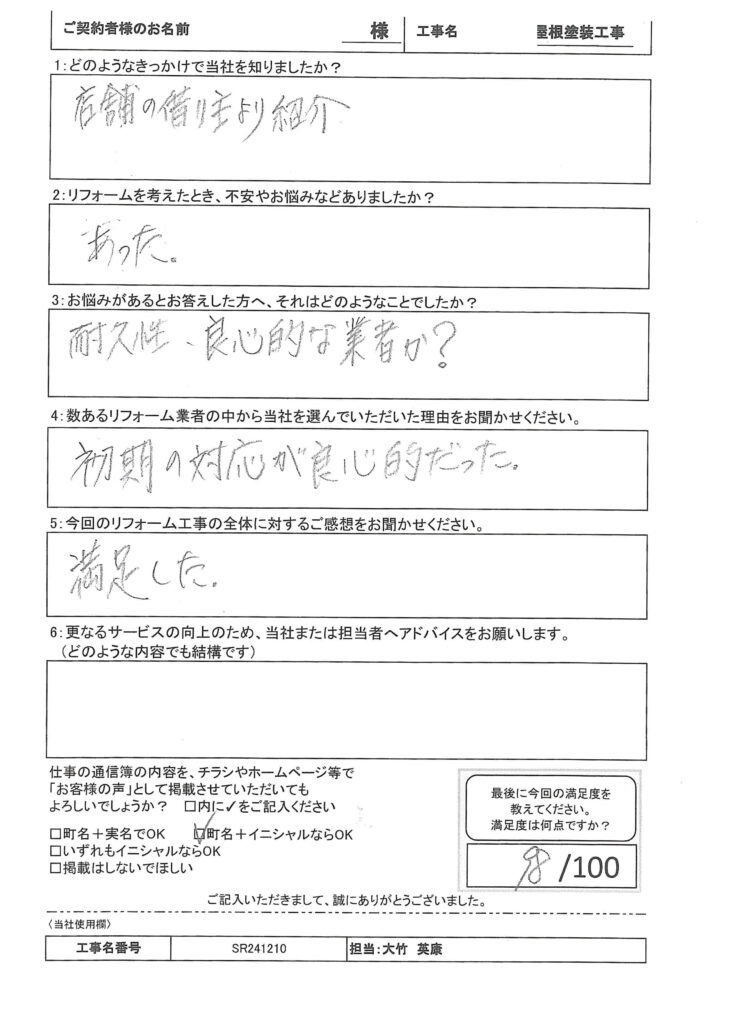 ご契約者様のお名前 様 工事名 屋根塗装工事
1:どのようなきっかけで当社を知りましたか?
店舗の借り主より紹介
2:リフォームを考えたとき、不安やお悩みなどありましたか?
あった。
3:お悩みがあるとお答えした方へ、それはどのようなことでしたか?
耐久性、良心的な業者か?
4:数あるリフォーム業者の中から当社を選んでいただいた理由をお聞かせください。
初期の対応が良心的だった。
5:今回のリフォーム工事の全体に対するご感想をお聞かせください。
満足した。
6:更なるサービスの向上のため、当社または担当者へアドバイスをお願いします。
(どのような内容でも結構です)
仕事の通信簿の内容を、チラシやホームページ等で
「お客様の声」として掲載させていただいても
よろしいでしょうか? □内に✓をご記入ください
□町名+実名でOK ☑町名+イニシャルならOK
□いずれもイニシャルならOK
□掲載はしないでほしい
最後に今回の満足度を
教えてください。
満足度は何点ですか?
/100
ご記入いただきまして、誠にありがとうございました。
〈当社使用欄〉
工事名番号 SR241210 担当:大竹 英康